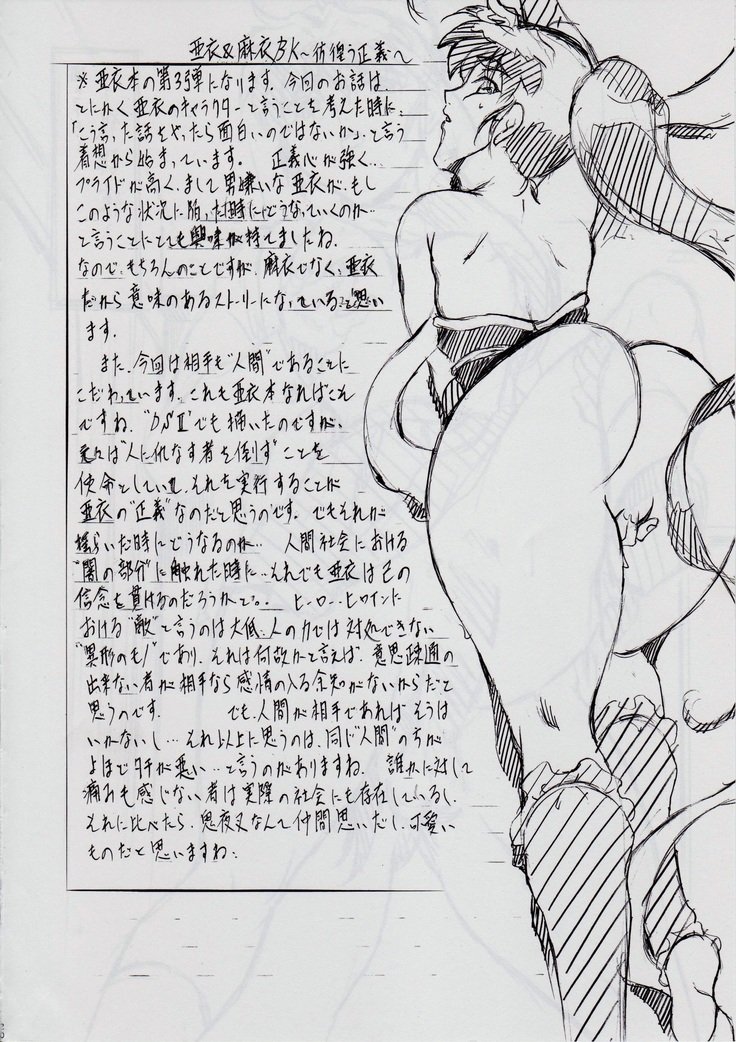 亜衣&麻衣BK~彷徨う正義~
※亜衣本の第3弾になります。今回のお話は、
とにかく亜衣のキャラクターと言うことを考えた時に、
「こう言った話をやったら面白いのではないか」と言う
着想から始まっています。 正義心が強く…
プライドが高く、まして男嫌いな亜衣が、もし
このような状況に陥った時にどうなっていくのか…
と言うことにとても興味が持てましたね。
なので、もちろんのことですが、麻衣でなく、亜衣
だから意味のあるストーリーになっていると思い
ます。
また、今回は相手も“人間”であることに
こだわっています。これも亜衣本なればこそ
ですね。“DSⅡ”でも描いたのですが、
“人に仇なす者を倒す”ことを
使命としていて、それを実行することが
亜衣の“正義”なのだと思うのです。でもそれが
揺らいだ時にどうなるのか… 人間社会における
“闇の部分”に触れた時に…それでも亜衣は己の
信念を貫けるのだろうかと。 ヒーロー・ヒロインに
おける“敵”と言うのは大低、人の力では対処できない
“異形のモノ”であり、それは何故かと言えば、意思疎通の
出来ない者が相手なら感情の入る余知がないからだと
思うのです。 でも、人間が相手であればそうは
いかないし…それ以上に思うのは、同じ“人間”の方が
よほどタチが悪い…と言うのがありますね。 誰かに対して
痛みも感じない者は実際の社会にも存在しているし、
それに比べたら、鬼夜叉なんて仲間思いだし、可愛い
ものだと思いますね。